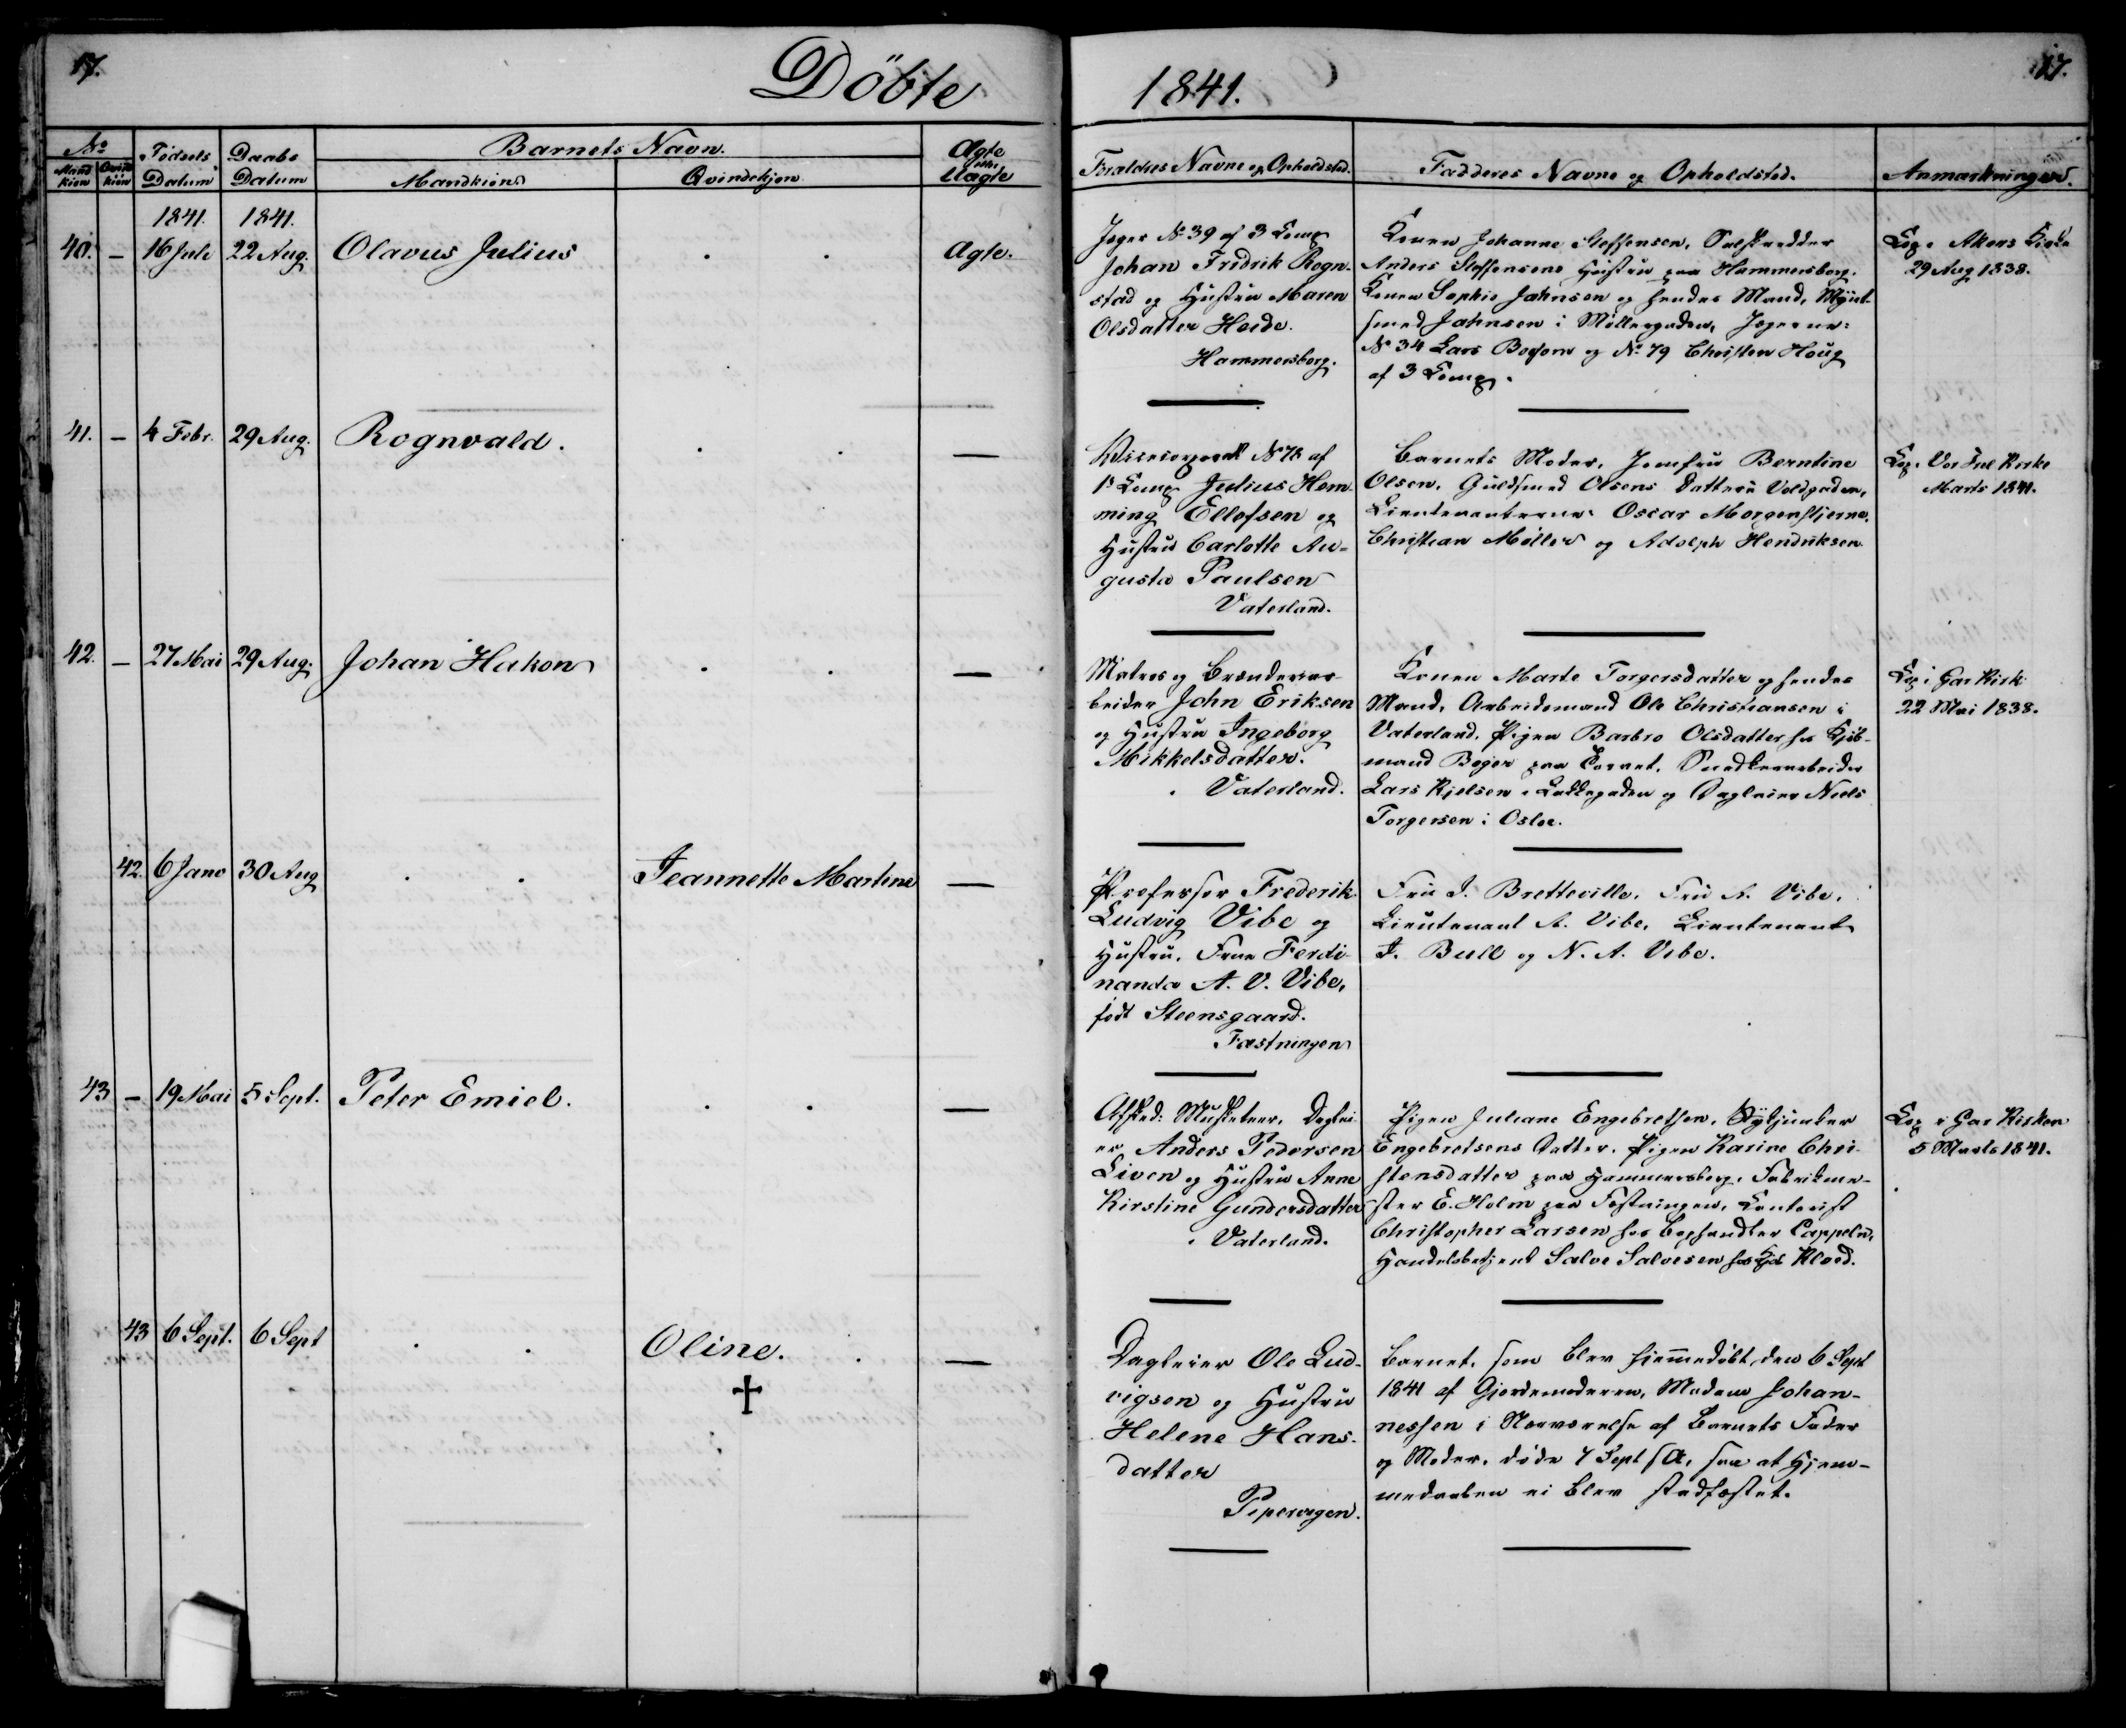 17.
Döbte
1841.
17.
No
Mand kiön
Qvinde kiön
Födsels Datum
Daabs Datum
Barnets Navn.
Mandkiön
Qvindekjøn
Ægte eller Uægte
Foraldres Navne og Opholdsted.
Fadderes Navne og Opholdsted.
Anmarkninger.
1841.
1841.
40.
–
16 Juli
22 Aug.
Olavus Julius
Ægte.
Jæger No 39 af 3 Comp
Johan Fridrik Rogn-
stad og Hustru Maren
Olsdatter Heide.
Hammersborg.
Konen Johanne Steffensen,
Anders Steffensens Hustru paa Hammersborg.
Konen Sophie Jahnsen og hendes Mand, Mynt-
smed Jahnsen i Möllergaden, Jægerne:
No 34 Lars og No 79 Christen Houg
af 3 Comp.
Cop. i Akers Kirke
29 Aug 1838.
41.
–
4 Febr.
29 Aug.
Rognvald.
—
No 78 af
1ste Comp Julius Hem-
ming Ellefsen og
Hustru Carlotte Au-
gusta Paulsen
Vaterland.
Barnets Moder, Jomfru Berntine
Olsen, Guldsmed Olsens Datter i Voldgaden,
Lieutenanterne: Oscar Morgenstjerne,
Christian Möller og Adolph Hendriksen
Cop. i Vor Frel Kirke
Marts 1841.
42.
–
27 Mai
29 Aug.
Johan Hakon
—
Matros og Brænderiar-
beider John Eriksen
og Hustru Ingeborg
Mikkelsdatter.
Vaterland.
Konen Marte Torgersdatter og hendes
Mand, Arbeidsmand Ole Christiansen i
Vaterland, Pigen Barbro Olsdatter hos Kjöb-
mand Beger paa Torvet,
Lars Kjelsen i Lakkegaden og Dagleier Niels
Torgersen i Osloe.
Cop. i Gar Kirk
22 Mai 1838.
42.
6 Janv
30 Aug
Jeannette Martine
—
Professor Frederik
Ludvig Vibe og
Hustru, Frue Ferdi-
nanda A. V. Vibe,
födt Steensgaard.
Fæstningen
Fru J. Bretteville, Fru A. Vibe,
Lieutenant A. Vibe, Lieutenant
J. Bull og N. A. Vibe.
43
–
19 Mai
5 Sept.
Peter Emiel.
—
Afsked: Musketeer, Daglei-
er Anders Pedersen
Liven og Hustru Anne
Kirstine Gundersdatter
Vaterland.
Pigen Juliane Engebretsen,
Engebretsens Datter, Pigen Karine Chri-
stensdatter paa Hammersborg, Fabrikme-
ster E. Holm paa Festningen, Contorist
Christopher Larsen hos Boghandler Cappeln,
Handelsbetjent Salve Salvesen hos Kjöb Kloed.
Cop i Gar Kirken
5 Marts 1841.
43
6 Sept.
6 Sept
Oline.
†
—
Dagleier Ole Lud-
vigsen og Hustru
Helene Hans-
datter
Pipervigen.
Barnet, som blev hjemmedöbt den 6 Sept
1841 af Gjordemoderen, Madam Johan-
nessen i Nærværelse af Barnets Fader
og Moder, döde 7 Sept s. A, saa at Hjem-
medaaben ei blev stadfæstet.